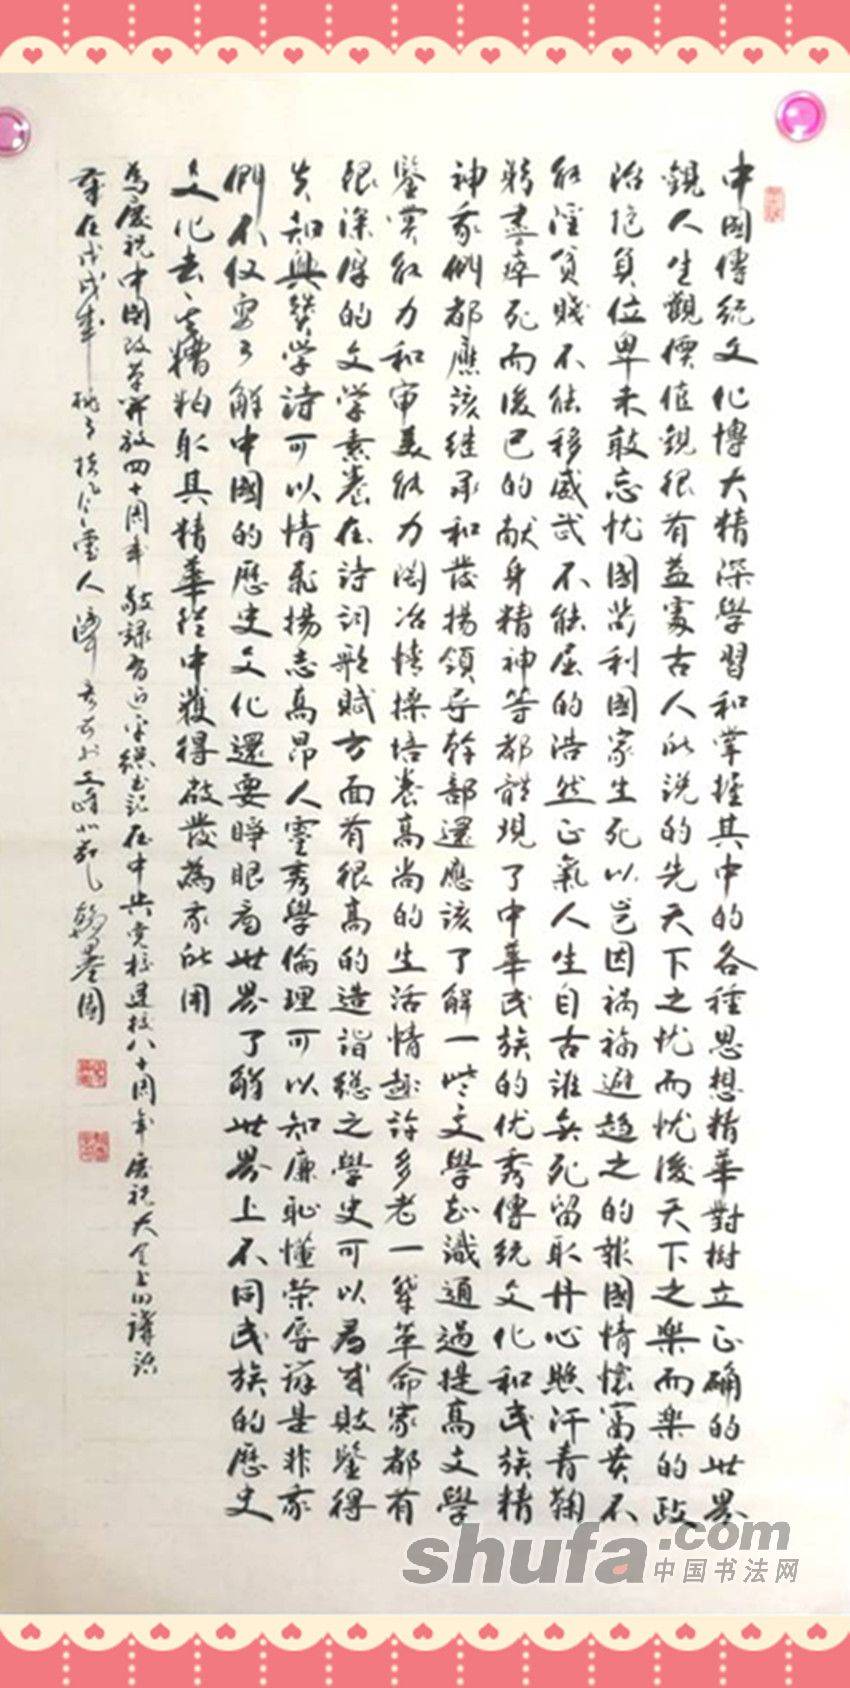 中國傳統文化博大精深學習和掌握其中的各種思想精華對樹立正确的世界
觀人生觀價值觀很有益處古人所説的先天下之忧而忧後天下之樂而樂的政
治抱負位卑未敢忘忧國苟利國家生死以豈因禍福避趨之的報國情懷富貴不
能淫貧賤不能移威武不能屈的浩然正氣人生自古誰無死留取丹心照汗青鞠
躬盡瘁死而後已的献身精神等都體現了中華民族的优秀傳統文化和民族精
神我們都應該继承和發揚領导幹部還應該了解一些文學知識通過提高文學
鑒賞能力和审美能力陶冶情操培養高尚的生活情趣許多老一輩革命家都有
很深厚的文学素養在詩詞歌賦方面有很高的造詣總之學史可以看成敗鑒得
失知興替学詩可以情飛揚志高昂人靈秀學倫理可以知廉耻懂荣辱辨是非我
們不仅要了解中國的歷史文化還要睜眼看世界了解世界上不同民族的歷史
文化去其糟粕取其精華從中獲得啟發為我所用
為慶祝中國改革開放四十周年敬録習近平總书記在中共党校建校八十周年慶祝大會上的講話
歲在戊戌年 人 翰墨園
shufa.com
中国书法网